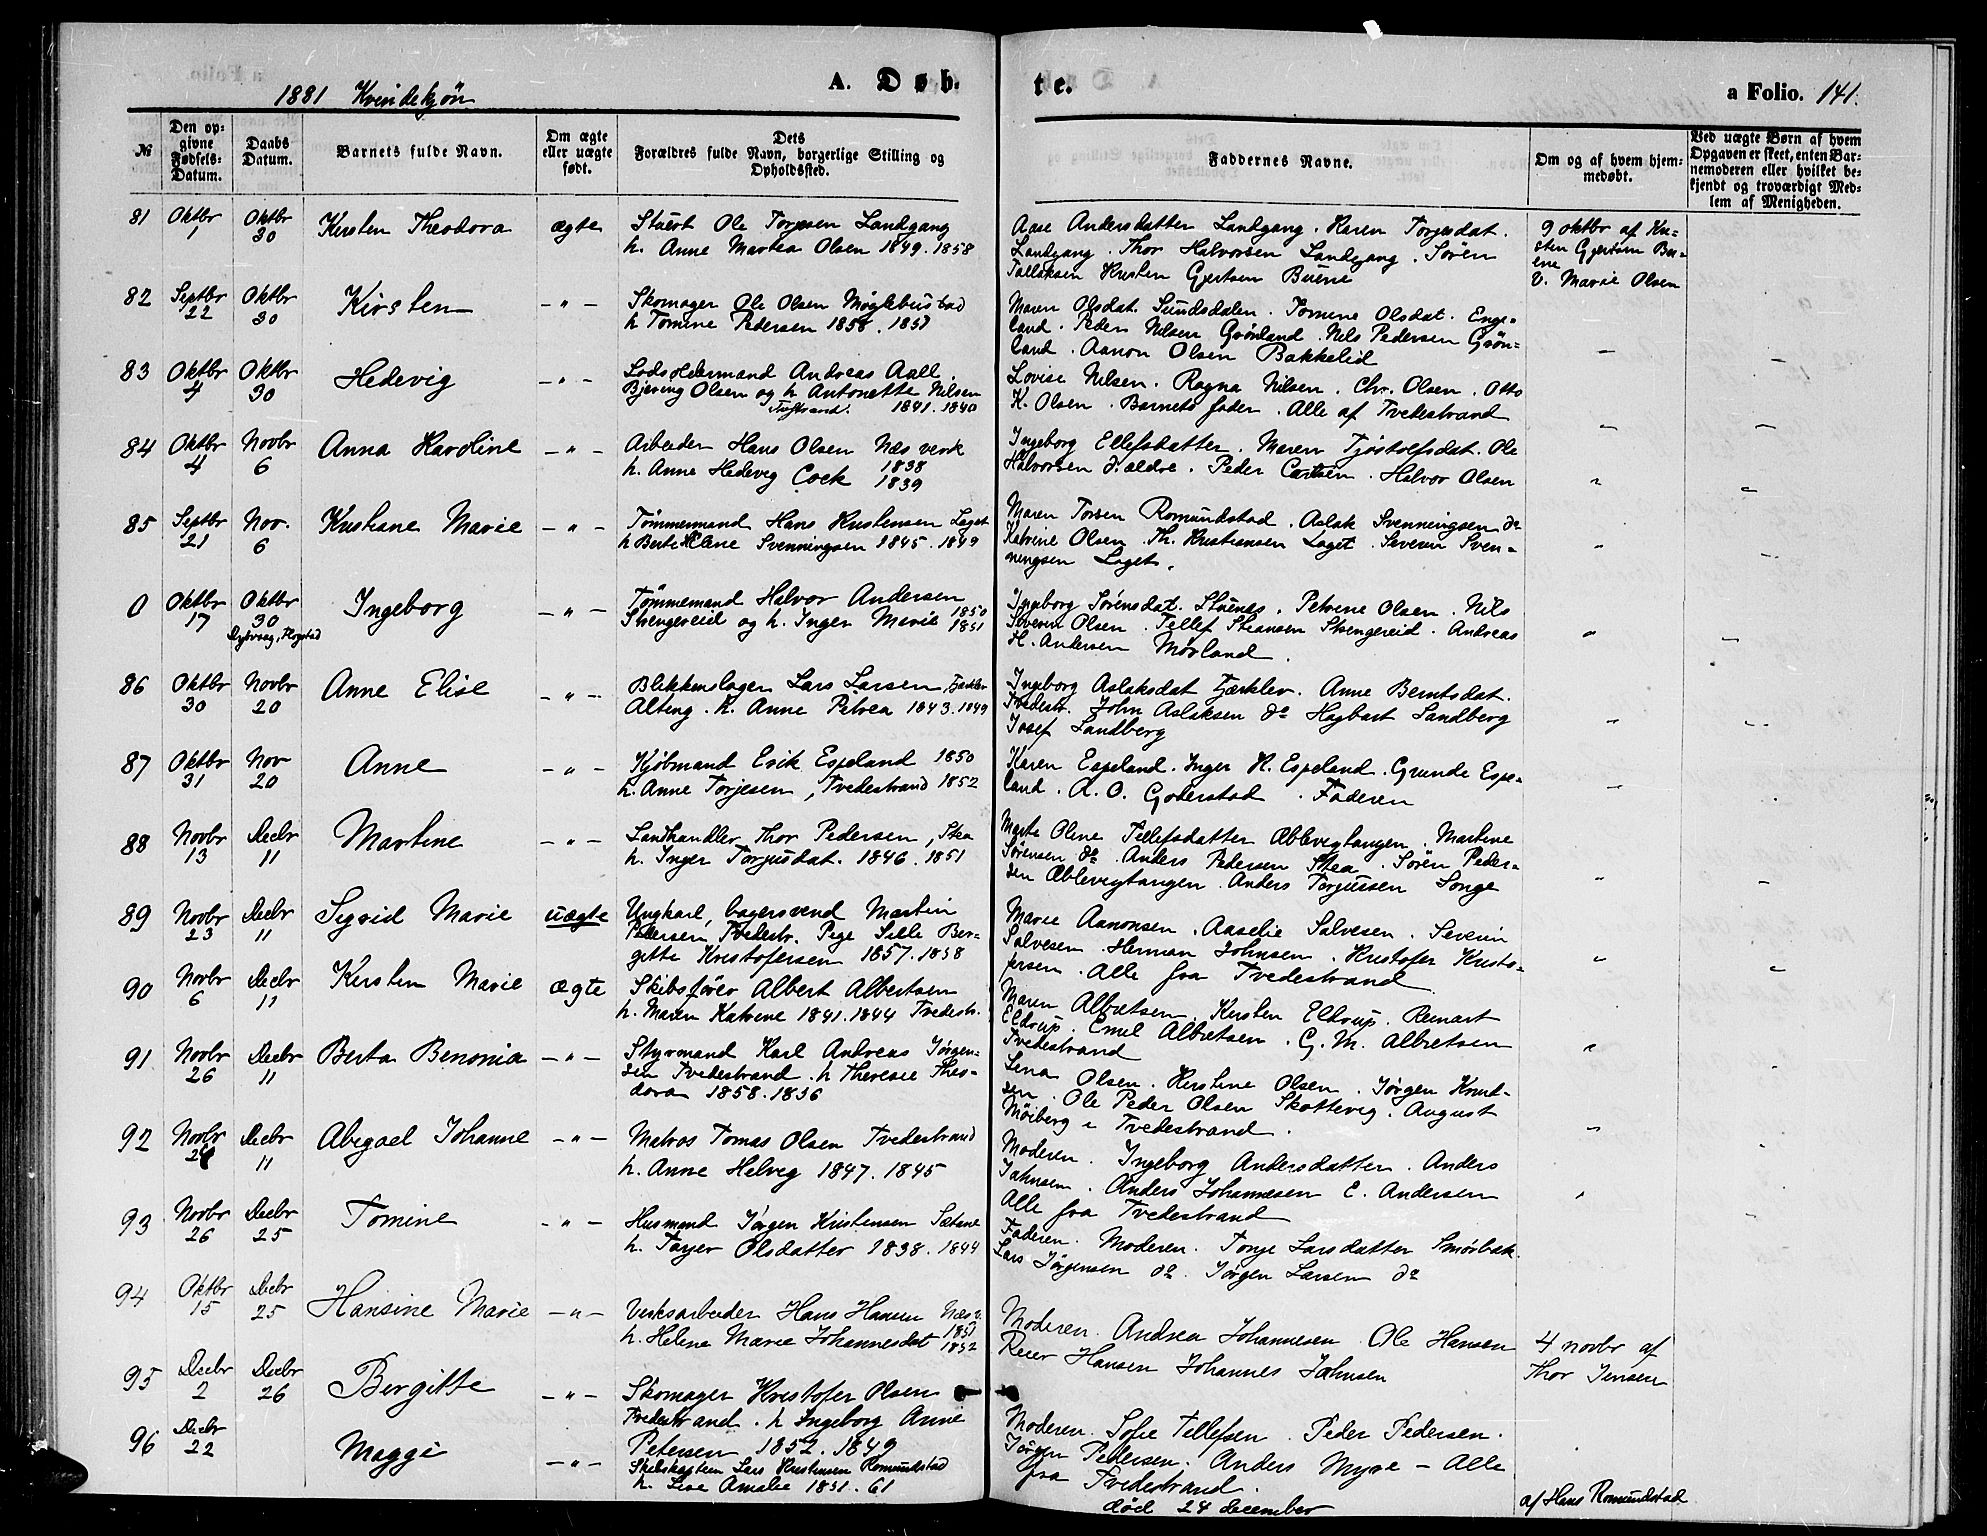 1881 Kvindekjøn
A. Døb-
te.
a Folio. 141.
№
Den op-
givne
Fødsels-
Datum.
Daabs
Datum.
Barnets fulde Navn.
Om ægte
eller uægte
født.
Dets
Forældres fulde Navn, borgerlige Stilling og
Opholdssted.
Faddernes Navne.
Om og af hvem hjem-
medøbt.
Ved uægte Børn af hvem
Opgaven er skeet, enten Bar-
nemoderen eller hvilket be-
kjendt og troværdigt Med-
lem af Menigheden.
81 Oktbr 1 Oktbr 30 Kirsten Theodora ægte
Stuert Ole Torjesen Landgang
h. Anne Martea Olsen 1849. 1858
Aase Andersdatter Landgang. Karen Torjusdat.
Landgang. Thor Halvorsen Landgang. Sören
Tallaksen Kristen Gjertsen Buene
9 oktbr af Kri-
sten Gjertsen Bu-
ene
V. Marie Olsen
82 Septbr 22 Oktbr 30 Kirsten – " –
Skomager Ole Olsen Møglebustad
h Tomine Pedersen 1858. 1857
Maren Olsdat. Sundsdalen. Tomine Olsdat. Enge-
land. Peder Nilsen Grønland. Nils Pedersen Grøn-
land. Aanon Olsen Bakkelid
83 Oktbr 4 Oktbr 30 Hedevig – " –
Lods Oldermand Andreas Aall
Bjering Olsen og h Antonette Nilsen
Tvstrand. 1841. 1840
Lovise Nilsen. Ragna Nilsen. Chr. Olsen. Otto
K. Olsen. Barnets fader. Alle af Tvedestrand
84 Oktbr 4 Novbr 6 Anna Karoline – " –
Arbeider Hans Olsen Næs verk
1838
h. Anne Hedevig Cock 1839
Ingeborg Ellefsdatter. Maren Tjöstolfsdat. Ole
Halvorsen d. ældre. Peder Carlsen. Halvor Olsen
85 Septbr 21 Nov. 6 Kristiane Marie – " –
Tömmermand Hans Kristensen Laget
h Berte Helene Svenningsen 1845. 1849
Maren Torsen Romundstad. Aslak Svenningsen do
Katrine Olsen. Th. Kristiansen Laget. Severin Sven-
ningsen Laget.
0 Oktbr 17 Oktbr 30 Ingeborg – " –
Tömmermand Halvor Andersen
Skengereid og h. Inger Marie 1850 1851
Ingeborg Sörensdat. Stuenes. Petrine Olsen. Nils
Severin Olsen. Tellef Stiansen Skengereid. Andreas
H. Andersen Mörland.
86 Oktbr 30 Novbr 20 Anne Elise – " –
Blikkenslager Lars Larsen Fjærklev
Alteng. h. Anne Petrea 1843. 1849
Ingeborg Aslaksdat Fjærklev. Anne Berntsdat.
Tvedestr. John Aslaksen do Hagbart Sandberg
Josef Sandberg
87 Oktbr 31 Nov 20 Anne – " –
Kjöbmand Erik Espeland 1850
h. Anne Torjesen, Tvedestrand 1852
Karen Espeland. Inger K. Espeland. Grunde Espe-
land. A. O. Goderstad. Faderen
88 Novbr 13 Decbr 11 Martine – " –
Landhandler Thor Pedersen, Skea
h. Inger Torjusdat. 1846. 1851
Marte Oline Tellefsdatter Æblevigtangen. Martine
Sörensen do. Anders Pedersen Skea. Sören Peder-
sen Æblevigtangen. Anders Torjussen Songe
89 Novbr 23 Decbr 11 Sigrid Marie uægte
Ungkarl, bagersvend Martin
Pedersen, Tvedestr. Pige Sille Ber-
gitte Kristofersen 1857. 1858
Marie Aanonsen. Aaselie Salvesen. Severin
Salvesen. Herman Johnsen. Kristofer Kristo-
fersen. Alle fra Tvedestrand
90 Novbr 6 Decbr 11 Kirsten Marie ægte
Skibsfører Albert Albertsen
h. Maren Katrine 1841. 1844 Tvedestr.
Maren Albretsen. Kirsten Eldrup. Reinart
Eldrup. Emil Albretsen. G. M. Albretsen
Tvedestrand
91 Novbr 26 Decbr 11 Berta Benonia – " –
Styrmand Karl Andreas Jörgen-
sen Tvedestrand. h Theresie Theo-
dora 1858. 1856
Lena Olsen. Kirstine Olsen. Jörgen Knud-
sen. Ole Peder Olsen Skottevig. August
Möiberg i Tvedestrand.
92 Novbr Decbr 11 Abigael Johanne – " –
Matros Tomas Olsen Tvedestrand
h. Anne Helvig 1847. 1845
Moderen. Ingeborg Andersdatter. Anders
Jahnsen. Anders Johannesen E. Andersen
Alle fra Tvedestrand
93 Novbr 26 Decbr 25 Tomine – " –
Husmand Jörgen Kristensen
h. Tager Olsdatter 1838. 1844
Faderen. Moderen. Tonje Larsdatter Smörbæk.
Lars Jörgensen do. Jörgen Larsen do
94 Oktbr 15 Decbr 25 Hansine Marie – " –
Verksarbeider Hans Hansen Næs v.
1851
h. Helene Marie Johannesdat 1852
Moderen. Andrea Johannesen Ole Hansen
Reier Hansen Johannes Jahnsen
4 novbr af
Thor Jensen
95 Decbr 2 Decbr 26 Bergitte – " –
Skomager Kristofer Olsen
Tvedestrand. h Ingeborg Anne
Petersen 1852. 1849
Moderen. Sofie Tellefsen. Peder Pedersen.
Jörgen Pedersen. Anders Myre – Alle
fra Tvedestrand.
96 Decbr 22 Maggi – " –
Skibskaptein Lars Kristensen Romundstad
h. Lise Amalie 1851. 61
død 24 december
af Hans Romundstad